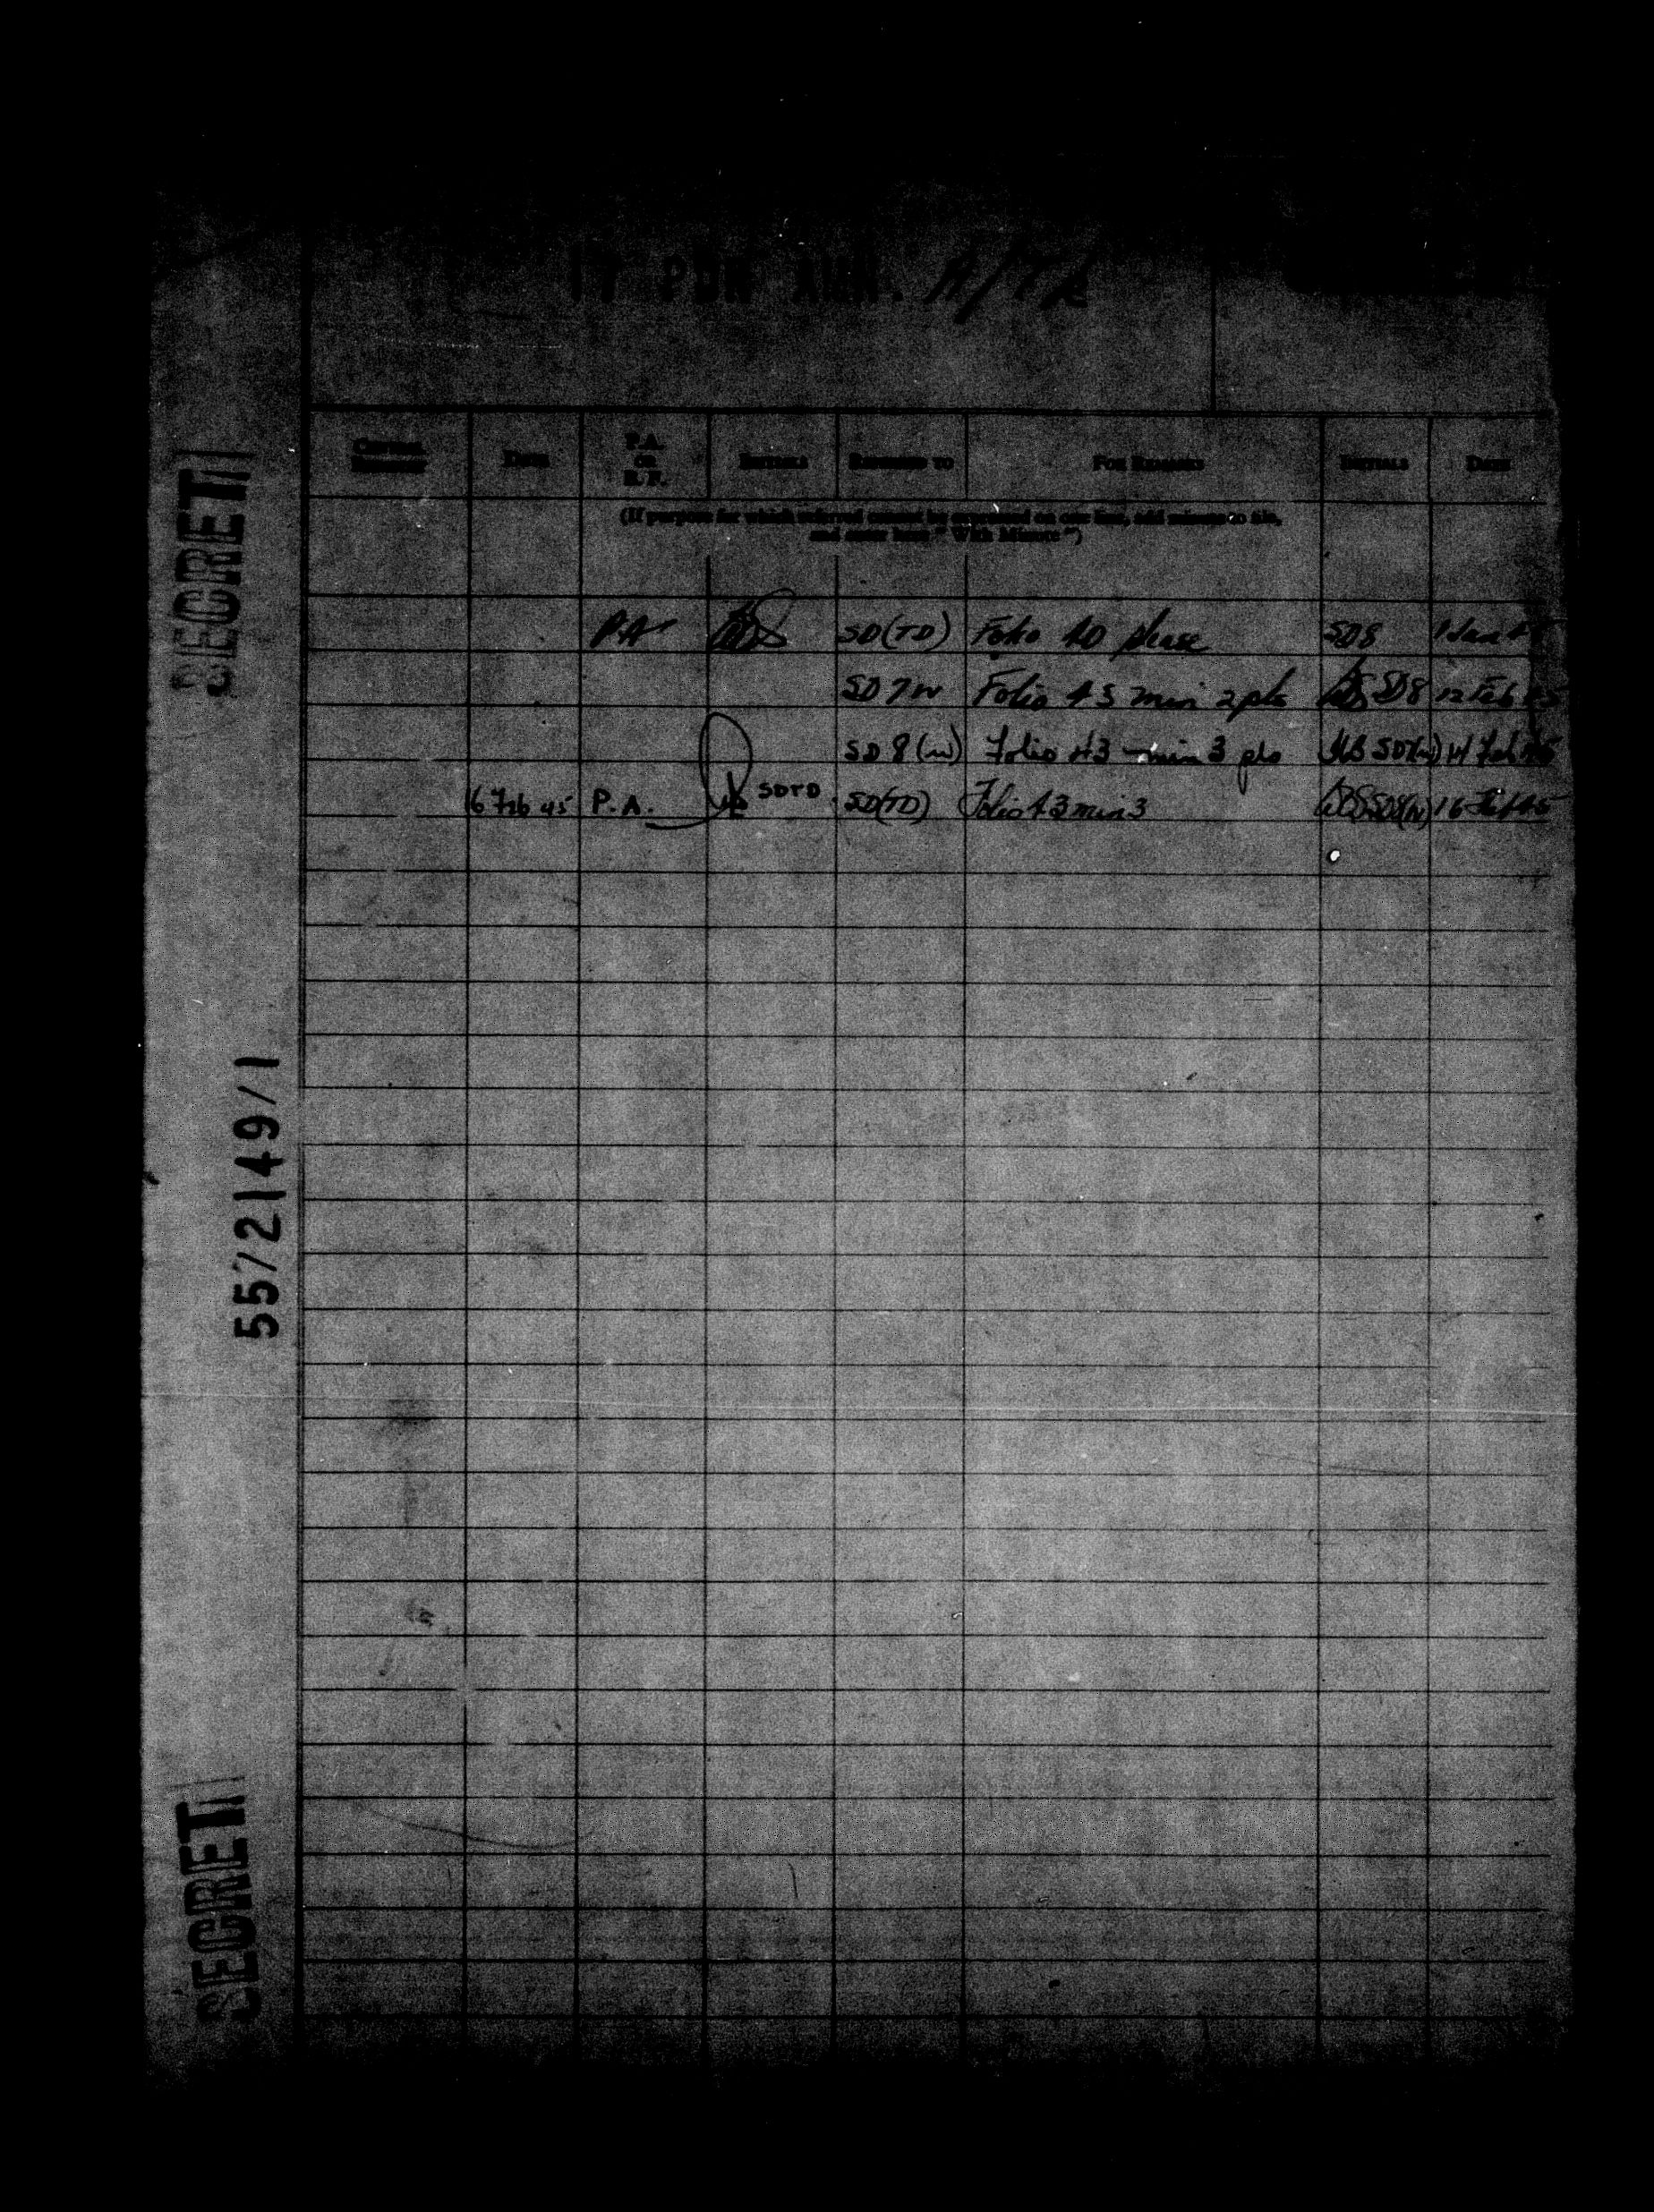 17 PDR AMN. A/TK
SECRET
P.A. OR B.F.
DATE
INITIALS
REFERRED TO
FOR REMARKS
INITIALS
DATE
(If purpose for which referred cannot be expressed on one line, add minute to file,
and enter here "With Minute")
P.A. SD(TD) Folio 40 please SD8 1 Jan 45
SD7W Folio 43 min 2 pls SD8 12 Feb 45
SD 8 (W) Folio 43 min 3 pls SD7(W) 14 Feb 45
16 Feb 45 P.A. SDTD SD(TD) Folio 43 min 3 SD8(W) 16 Feb 45
55/2149/1
SECRET